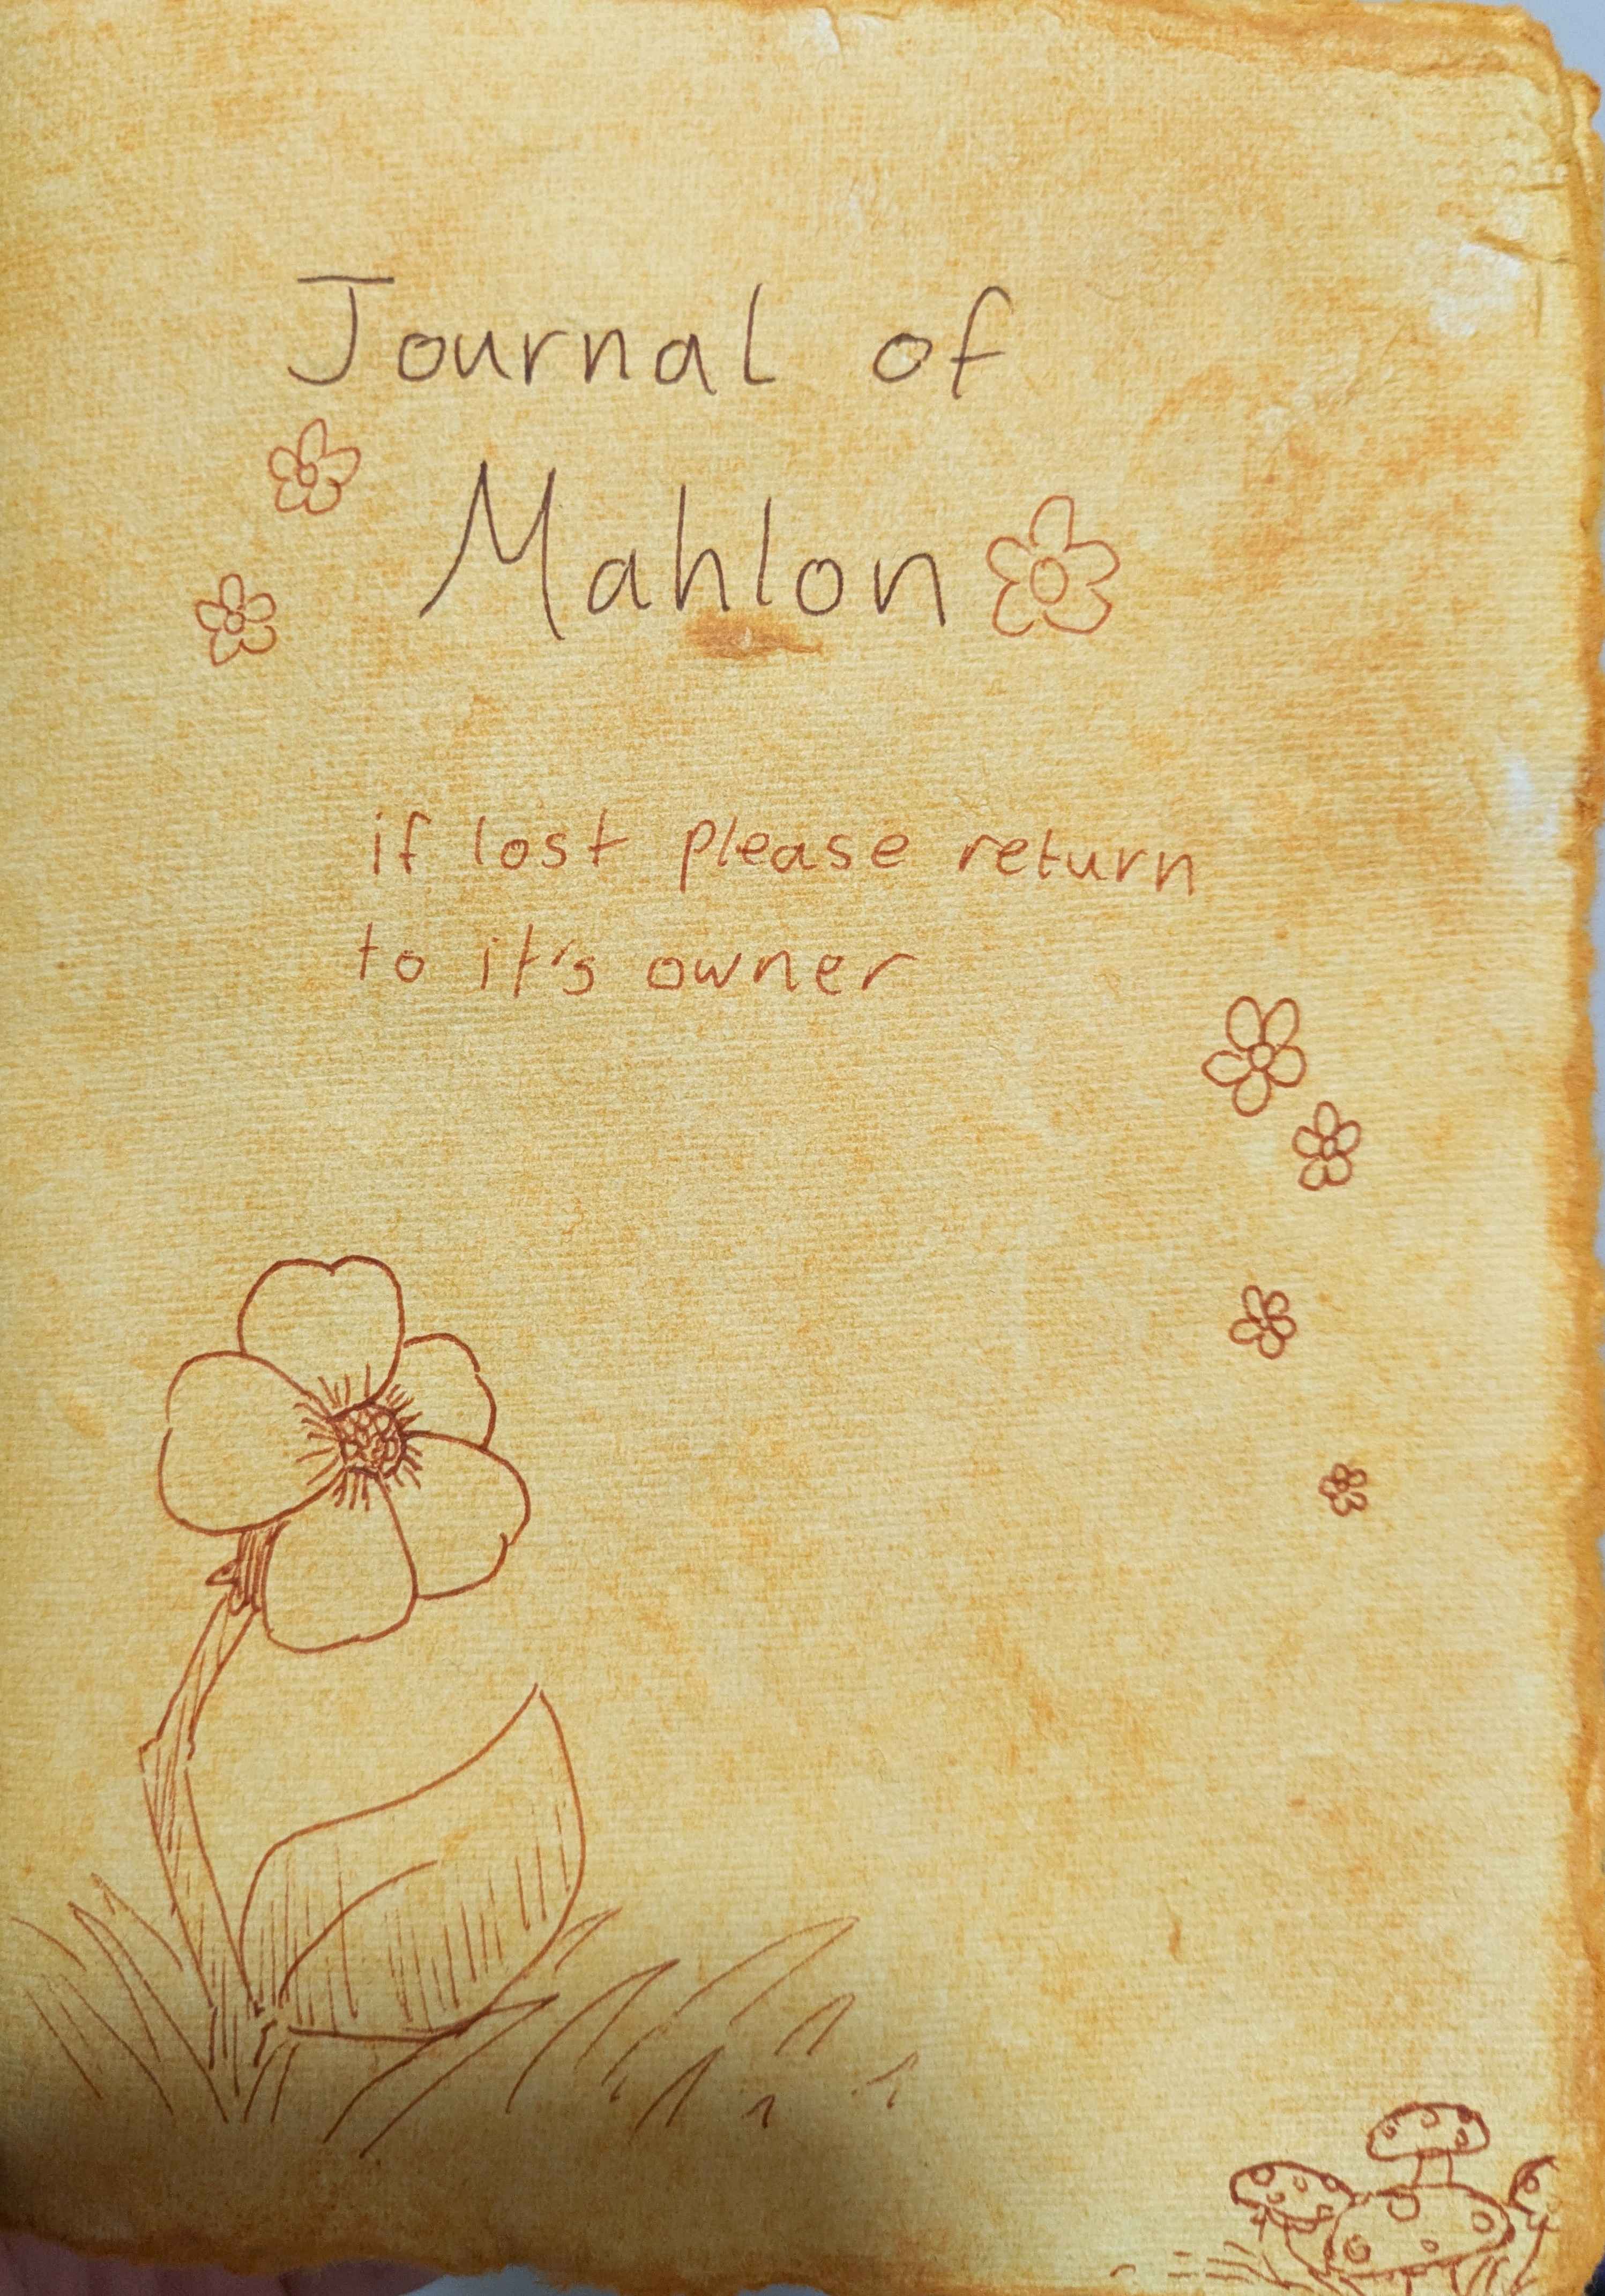 Journal of
Mahlon
if lost please return
to it's owner